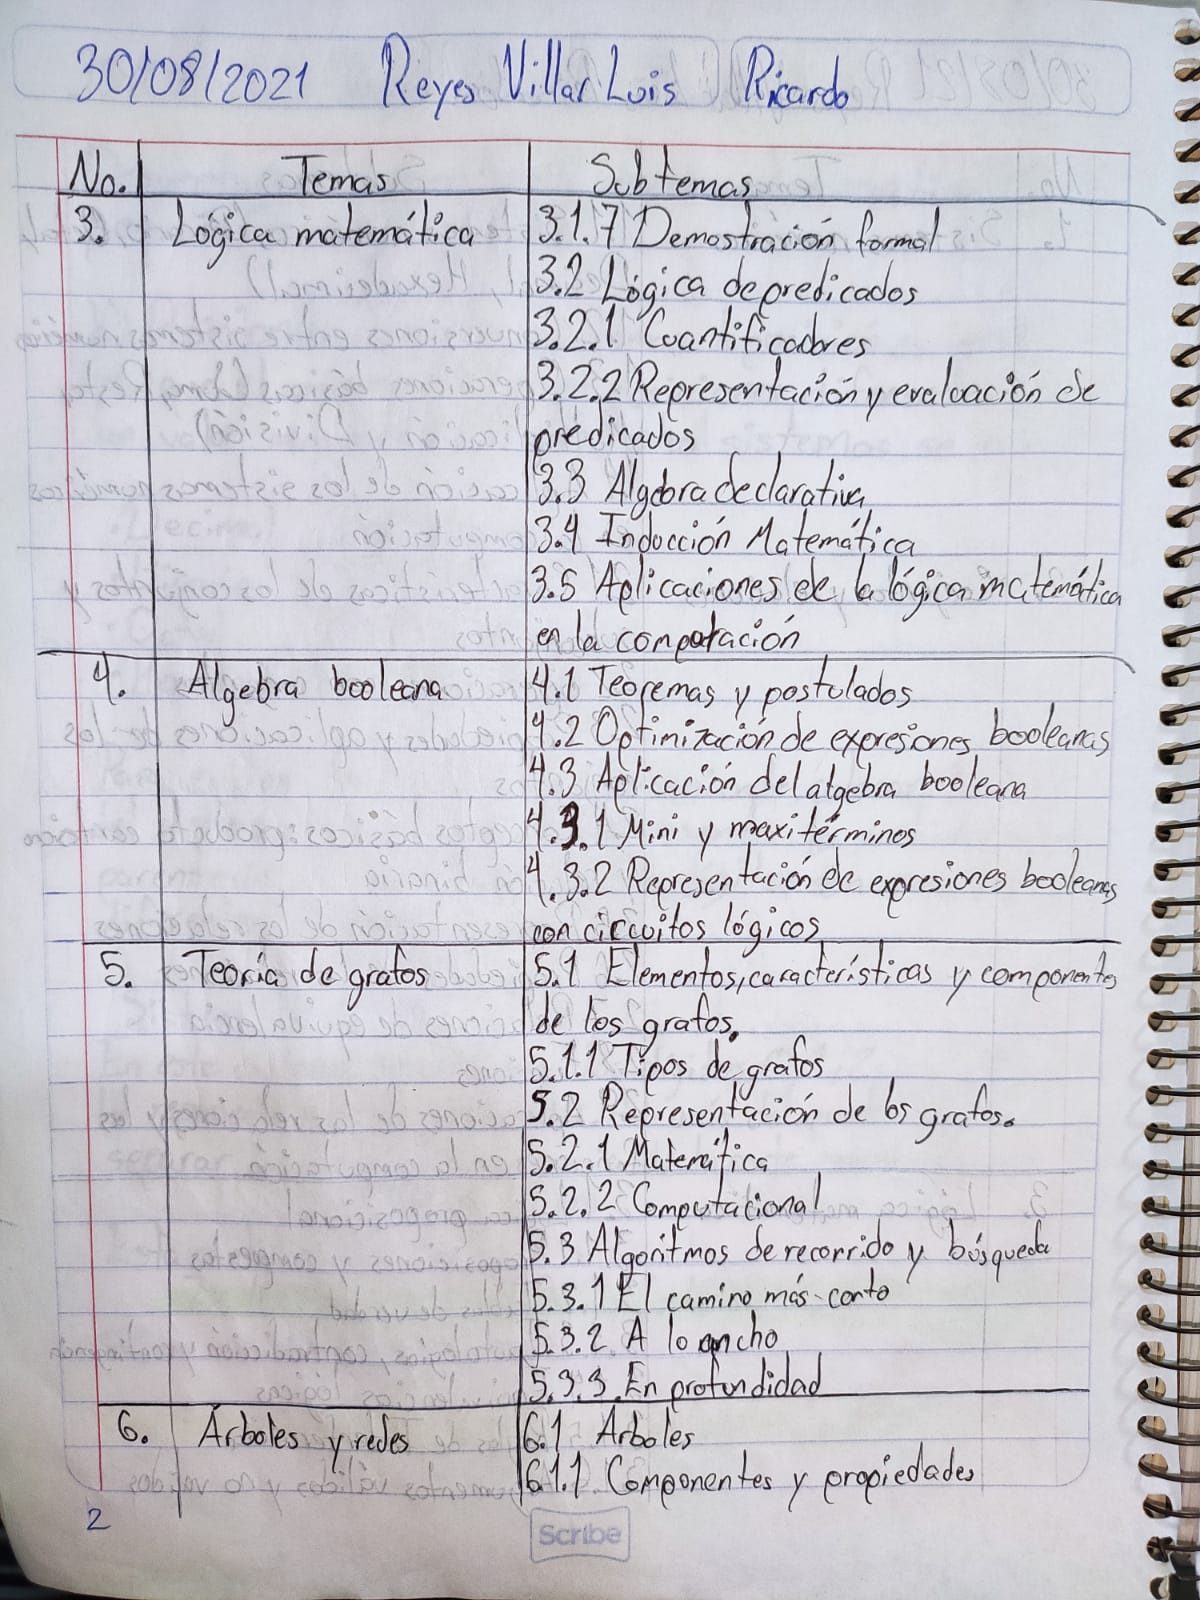 30/08/2021 Reyes Villar Luis Ricardo
No. Temas Subtemas
3. Lógica matemática 3.1.7 Demostración formal
3.2 Lógica de predicados
3.2.1 Cuantificadores
3.2.2 Representación y evaluación de
predicados
3.3 Algebra declarativa
3.4 Inducción Matemática
3.5 Aplicaciones de la lógica matemática
en la computación
4. Algebra booleana 4.1 Teoremas y postulados
4.2 Optimización de expresiones booleanas
4.3 Aplicación del algebra booleana
4.3.1 Mini y maxitérminos
4.3.2 Representación de expresiones booleanas
con circuitos lógicos
5. Teoría de grafos 5.1 Elementos, características y componentes
de los grafos.
5.1.1 Tipos de grafos
5.2 Representación de los grafos.
5.2.1 Matemática
5.2.2 Computacional
5.3 Algoritmos de recorrido y búsqueda
5.3.1 El camino más corto
5.3.2 A lo ancho
5.3.3 En profundidad
6. Árboles y redes 6.1 Arboles
6.1.1 Componentes y propiedades
2
Scribe